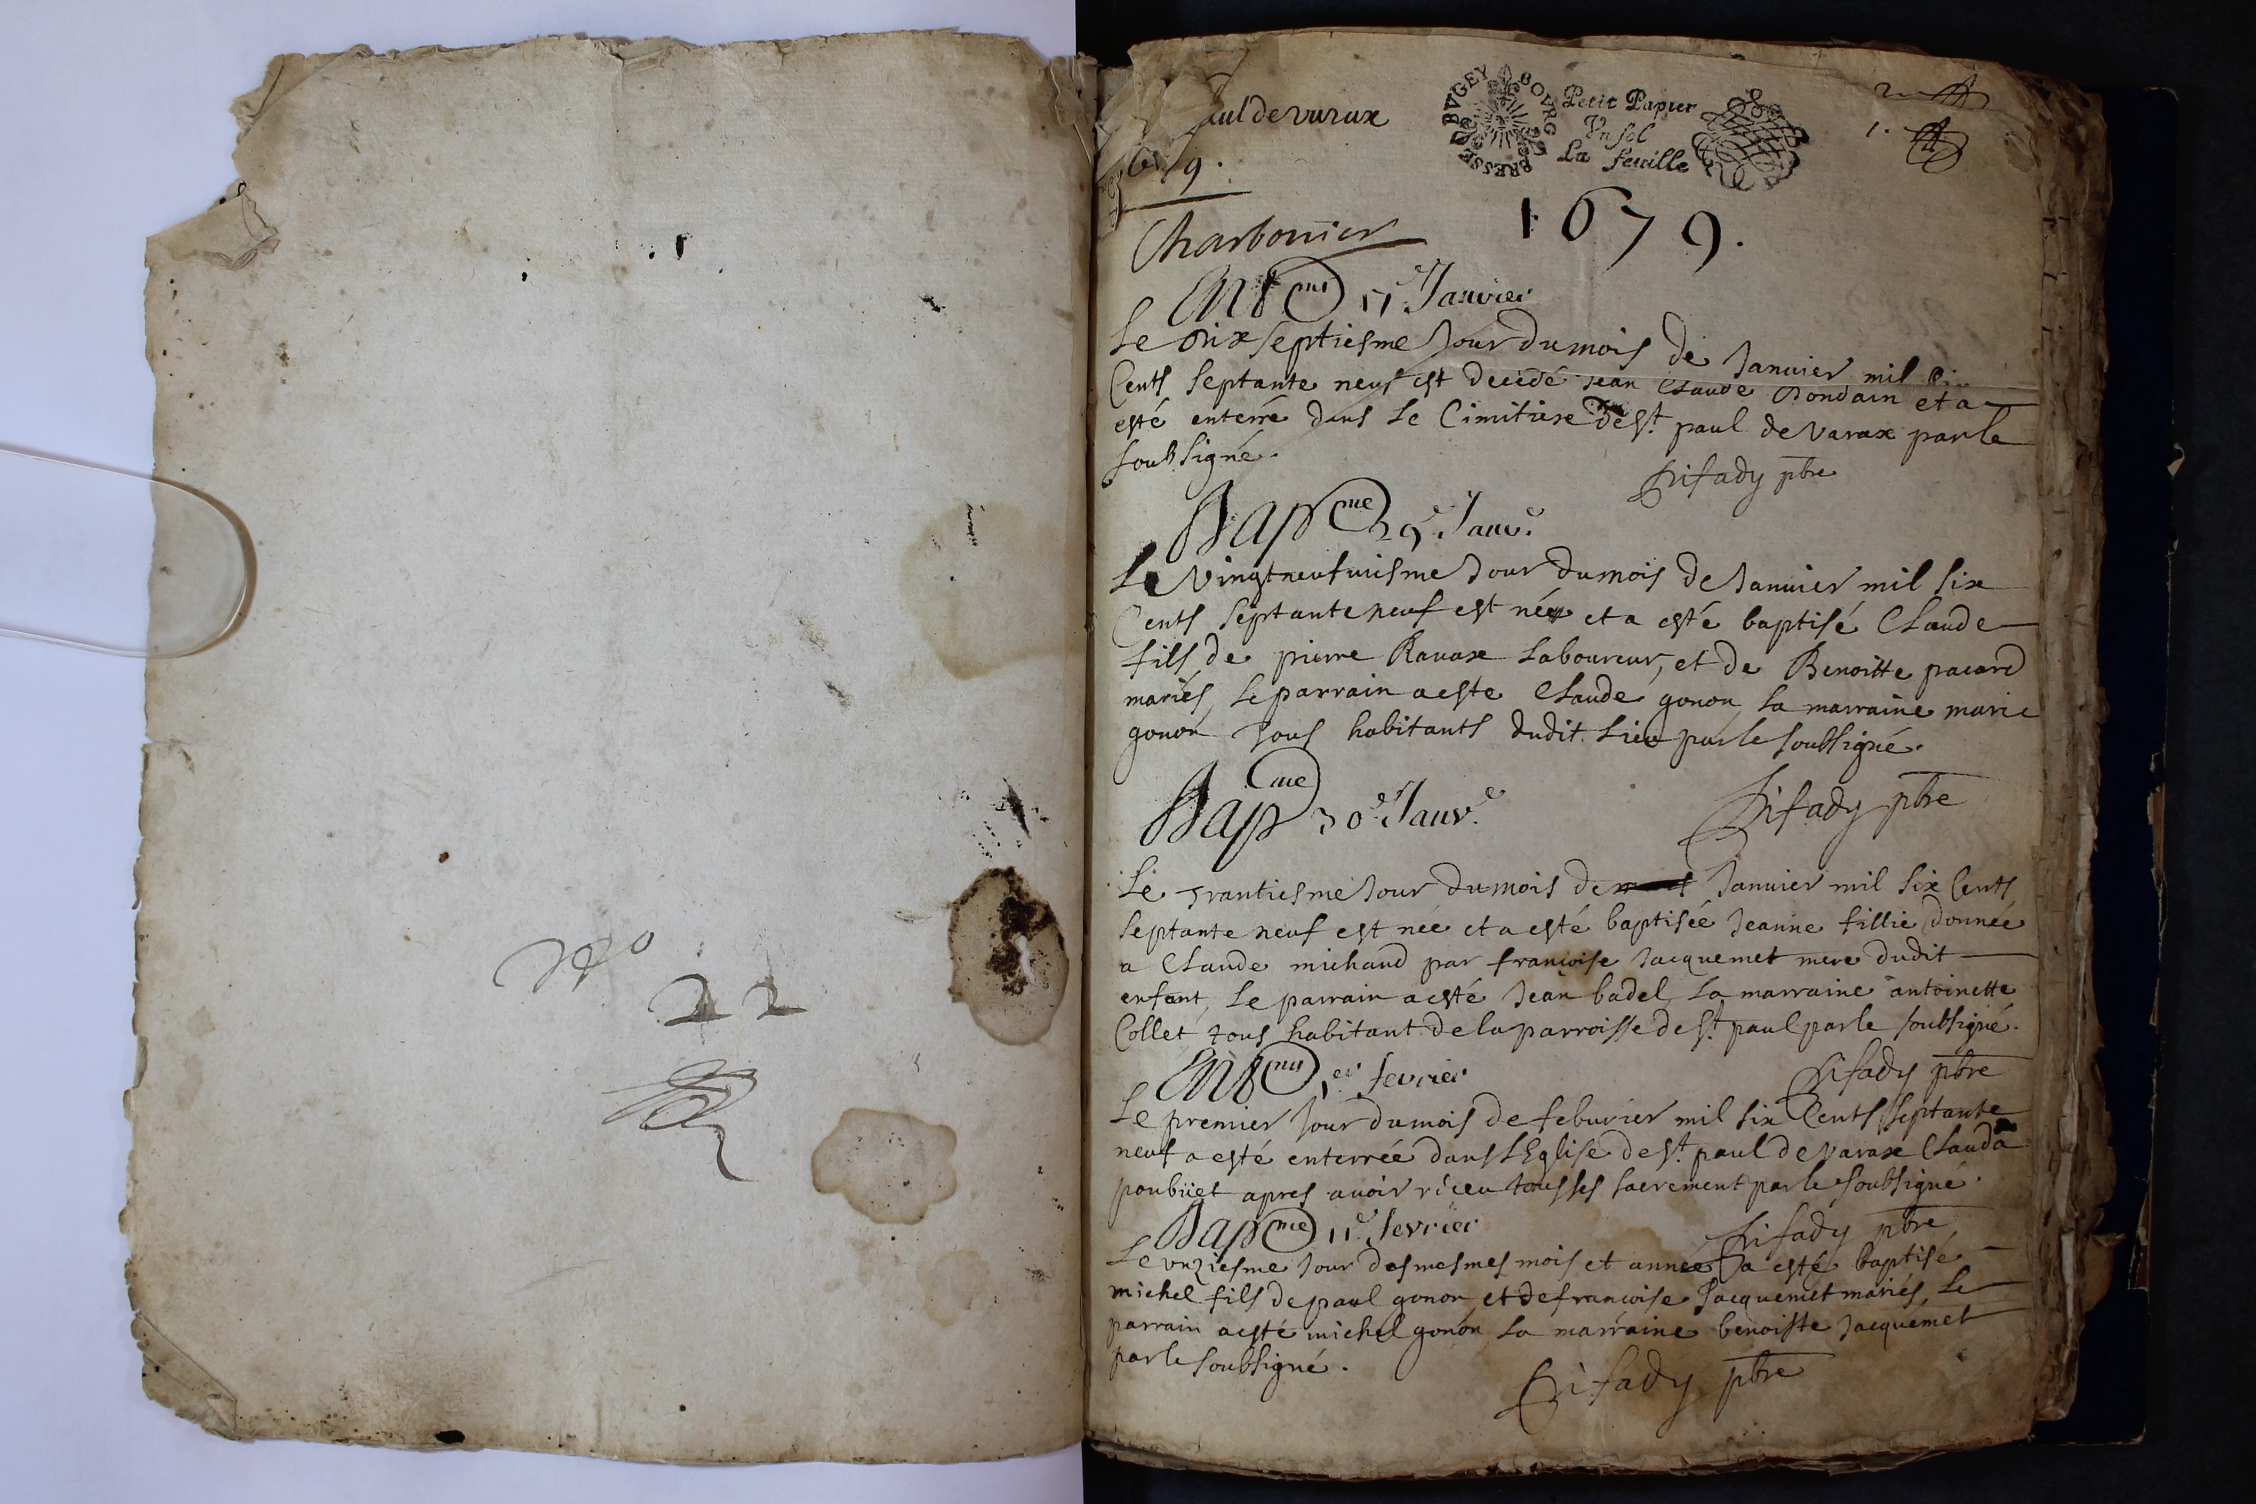 N°
22
aul de varax
BOVRG BRESSE BVGEY
Petit Papier
Vn sol
La feuille
1.
9.
1679.
Charbonier
Ent 17e Janvier
Le dix septiesme Jour du mois de Januier mil six
Cents septante neuf est decedé Jean Claude Bondain et a
esté enterré dans le Cimitiere de St. paul de Varax par le
soubsigné.
Sifady pbre
Bapme 29e Janve.
Le Vingtneufuiesme Jour du mois de Januier mil six
Cents septante neuf est né et a esté baptisé Claude
fils de pierre Rauax Laboureur, et de Benoitte pacard
mariés, le parrain a este Claude gonon, la marraine marie
gonon Tous habitants dudit Lieu par le soubsigné.
Sifady pbre
Bapme 30e Janve.
Le Trantiesme Jour du mois de Januier mil six Cents
septante neuf est née et a esté baptisée Jeanne fillie donnée
a Claude michaud par françoise Jacquemet mere dudit
enfant, le parrain a esté Jean badel, la marraine antoinette
Collet tous habitant de la parroisse de St. paul par le soubsigné.
Sifady pbre
Ent 1er fevrier
Le premier Jour du mois de feburier mil six Cents septante
neuf a esté enterrée dans l'Eglise de St. paul de varax Clauda
poubüet apres auoir riceu tous ses sacrement par le soubsigné.
Sifady pbre
Bapme 11e fevrier
Le vnziesme Jour des mesmes mois et année a esté baptisé
michel fils de paul gonon, et de françoise Jacquemet mariés, Le
parrain a esté michel gonon, la marraine benoiste Jacquemet
par le soubsigné.
Sifady pbre